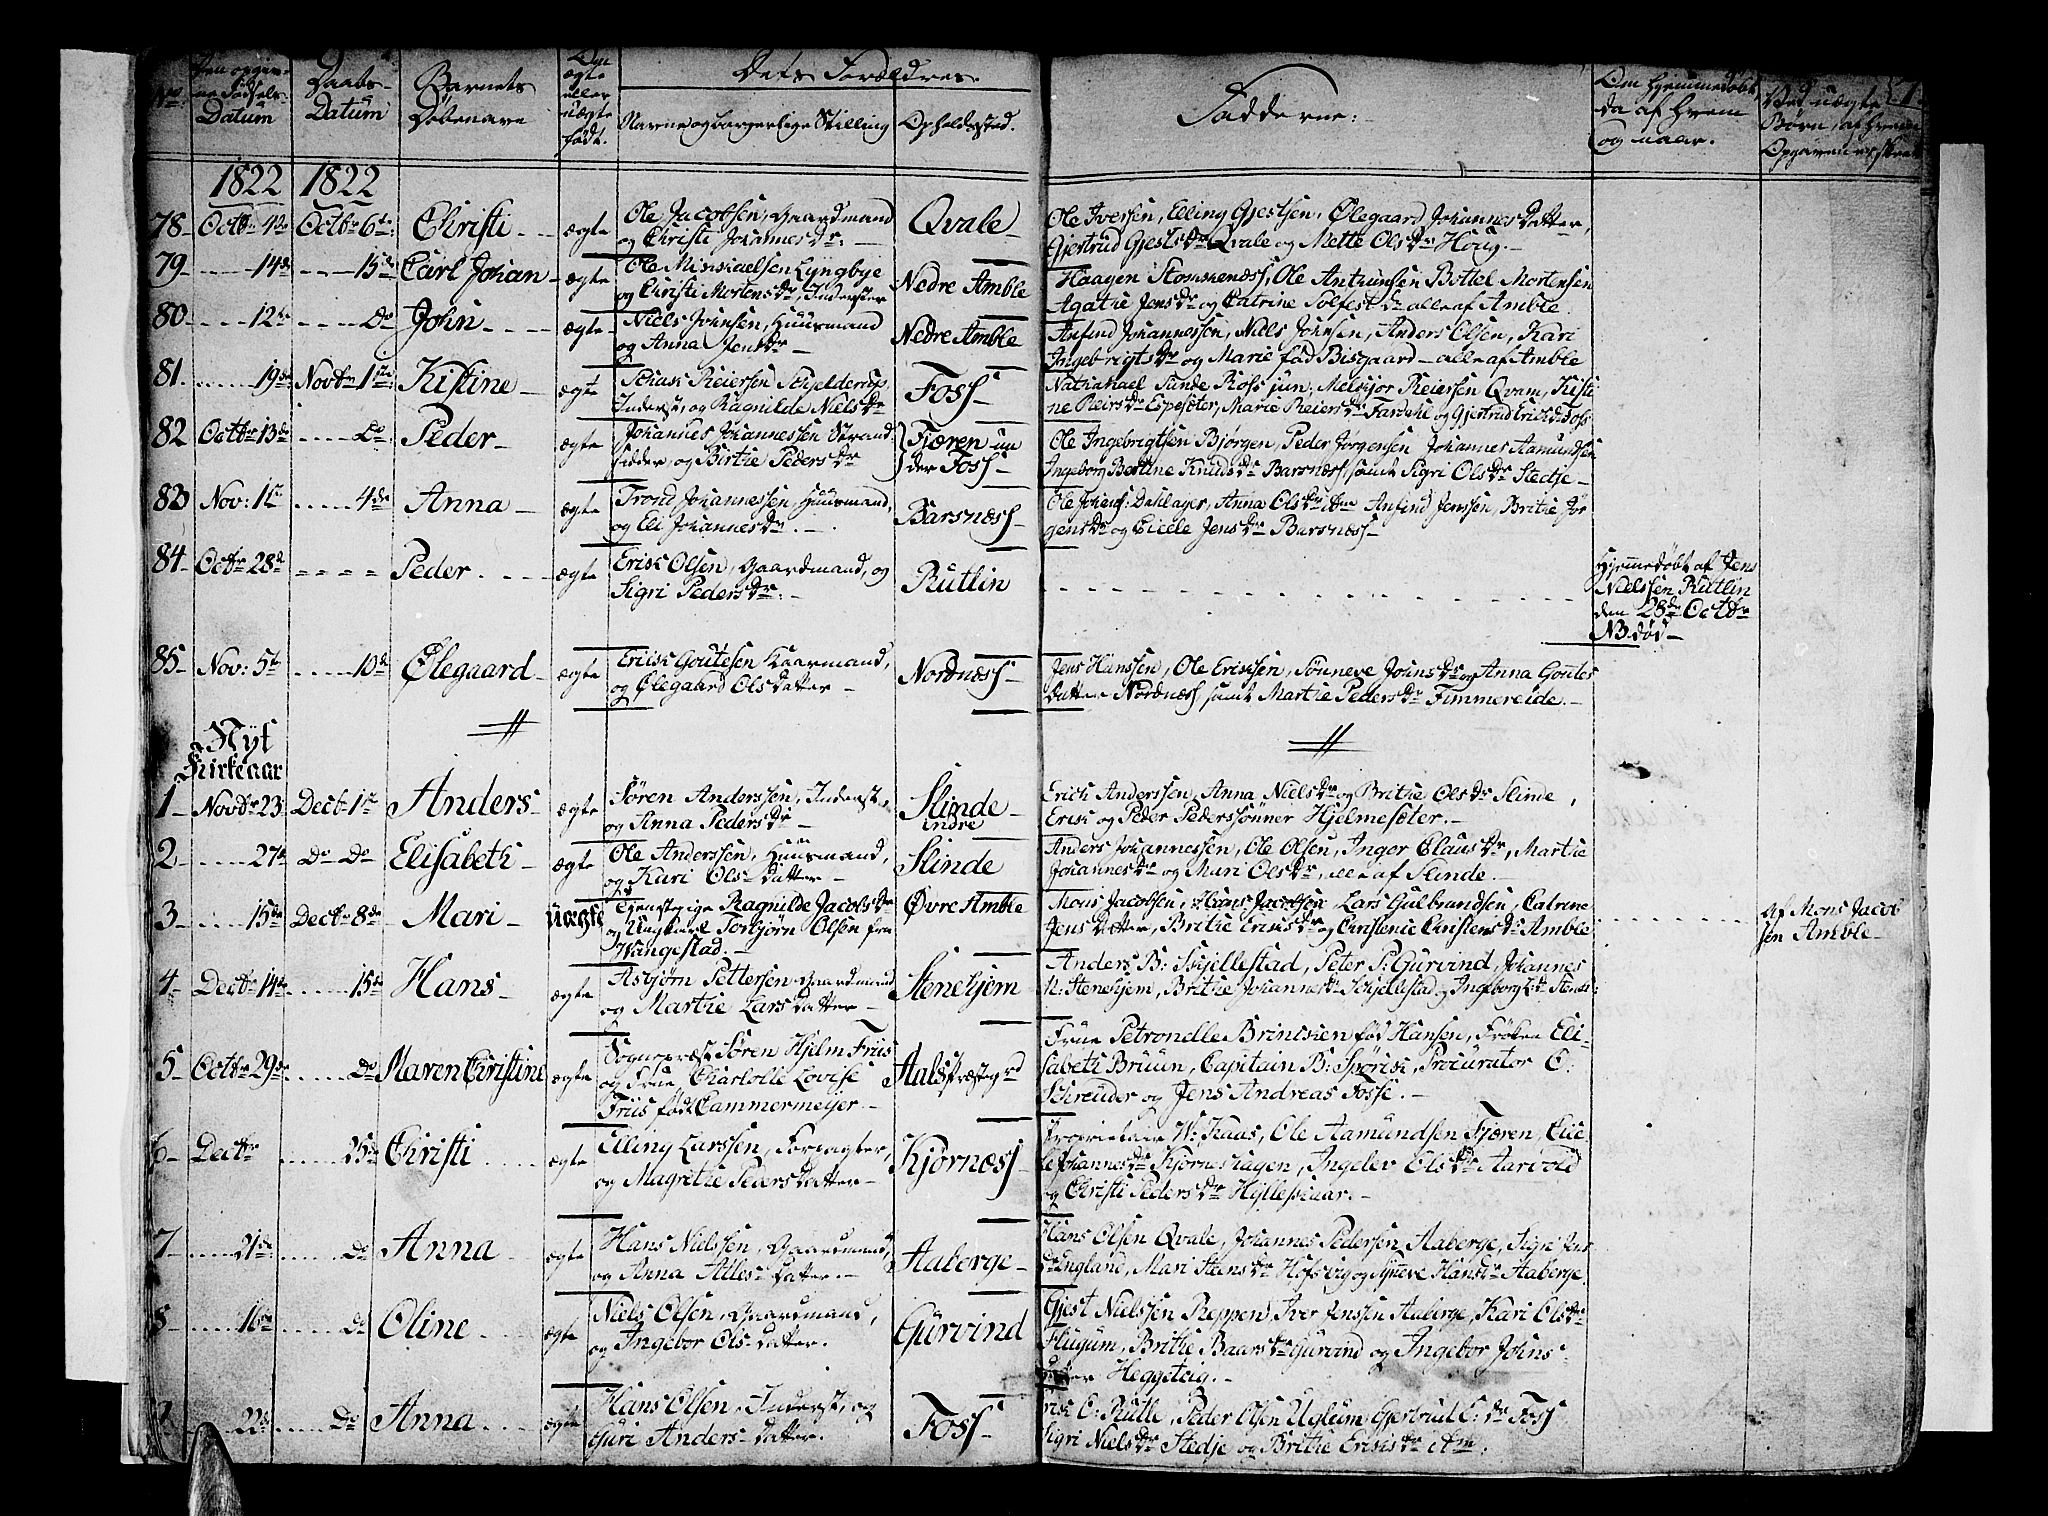 No.
Den opgiv-
ne Fødsels-
Datum
Daabs-
Datum
Barnets
Døbenavn
Om
ægte
eller
uægte
født.
Dets Forældres
Navne og borgerlige Stilling
Opholdssted.
Fadderne:
Om Hjemmedøbt,
da af Hvem
og naar.
Ved uægte
Børn, af Hvem
Opgaven er skeet
1822 1822
78 Octbr 4de Octbr 6te Christi ægte
Ole Jacobsen, Gaardmand
og Christi Johannesdr:
Qvale
Ole Iversen, Elling Gjestsen, Ølegaard Johannesdatter,
Gjertrud Gjestsdr Qvale og Mette Olsdr Houg.
79 14de 15de Carl Johan ægte
Ole Michaelsen Lyngbye
og Christi Mortensdr, Inderster
Nedre Amble
Haagen Ole Bottel Mortensen
Agathe Jensdr og Catrine alle af Amble.
80 12te Do John ægte
Niels Johnsen, Huusmand
og Anna Jensdr
Nedre Amble
Anfind Johannessen, Niels Johnsen, Anders Olsen, Kari
Ingebrigtsdr og Marie fød Bisgaard alle af Amble
81. 19de Novbr 1ste Kistine ægte
Reiersen Schjelderup,
Inderst, og Ragnilde Nielsdr
Foss
Nathanael Sunde Ross jun; Melchjor Reiersen Qvam, Kisti
ne Reirsdr Espeseter, Marie Reiersdr Fardahl og Gjertrud Foss
82 Octbr 13de Do Peder ægte
Johannes Johannessen Strand-
sidder, og Birthe Pedersdr
Fjæren un
der Foss
Ole Ingebrigtsen Bjørgen, Peder Jørgensen Johannes Aamundsen
Ingeborg Bertine Knudsdr Barsnæss, samt Sigri Olsdr Stedje
83 Nov: 1ste 4de Anna ægte
Trond Johannessen, Huusmand,
og Eli Johannesdr.
Barsnæss
Ole Johans: Anna Olsdr Anfind Jenssen, Brithe Jør
gensdr og Cicele Jensdr Barsnæss
84 Octbr 28de Peder ægte
Erick Olsen, Gaardmand, og
Sigri Pedersdr.
Rutlin
Hjemmedøbt af Jens
Nielssen Rutlin
den 28de Octbr
NB død
85 Nov: 5te 10de Ølegaard ægte
Erick Goutesen Huusmand,
og Ølegaard Olsdatter
Nordnæss
Jens Hanssen, Ole Erichsen, Sønneve Johnsdr og Anna Goutes
datter Nordnæss, samt Marthe Pedersdr Fimmereide.
Nyt
Kirkeaar
1 Novbr 23 Decbr 1ste Anders ægte
Søren Anderssen, Inderst,
og Anna Pedersdr
Slinde
Erich Anderssen, Anna Nielsdr og Brithe Olsdr Slinde,
Erick og Peder Pederssønner Hjelmeseter.
2 27de Do Do Elisabeth ægte
Ole Anderssen, Huusmand,
og Kari Olsdatter
indre
Slinde
Anders Johannessen, Ole Olsen, Inger Clausdr, Marthe
Johannesdr og Mari Olsdr, alle af Slinde.
3 15de Decbr 8de Mari Uægte
Tjenstpige Ragnilde Jacobsdr
og Ungkarl Torbjørn Olsen fra
Wangestad.
Øvre Amble
Mons Jacobsen, Hans Jacobsen Lars Gulbrandsen, Catrine
Jensdatter, Brithe Ericksdr og Christenie Christensdr Amble
Af Mons Jacob
sen Amble
4 Decbr 14de 15de Hans ægte
Asbjørn Pettersen Gaardmand
og Marthe Larsdatter
Stenehjem
Anders B: Skjellestad, Peter P: Gurvind, Johannes
N: Stenehjem, Brithe Johannesdr Schjellestad og Ingeborg
5 Octbr 29de Do Maren Christine ægte
Sognepræst Søren Hjelm Friis
og Frue Charlotte Lovise
Friis født Cammermeijer.
Aals præstegrd
Frue Petronelle fød Hansen, Frøken Eli-
sabeth Bruun, Capitain B: Spørck, Procurator C:
Schreuder og Jens Andreas Fosse.
6 Decbr 25de Christi ægte
Elling Larssen, Forpagter,
og Magrethe Pedersdatter
Kjørnæss
Proprietair W: Knas, Ole Aamundsen Fjæren, Cice
le Johannesdr Kjørneshagen, Ingelev Olsdr Aarvold
og Christi Pedersdr
7 21de Do Anna ægte
Hans Nielssen, Gaardmand,
og Anna Atlesdatter.
Aaberge
Hans Olsen Qvale, Johannes Pedersen Aaberge, Sigri Jens
dr England, Mari Steensdr Hofsvig og Synneve Hansdr Aaberge.
8 16de Do Oline ægte
Niels Olsen, Gaardmand,
og Ingebor Olsdatter.
Gurvind
Gjest Nielssen Reppen, Iver Jenssen Aaberge, Kari Olsdr
Flugum, Brithe Baarsdr Gurvind og Ingebor Johns-
datter Heggteig.
9 22de Do Anna ægte
Hans Olsen, Inderst, og
Guri Andersdatter.
Foss
Erik E: Rutle, Peder Olsen Uglum, Gjertrud E: dr Foss
Sigri Nielsdr Stedje og Brithe Ericksdr